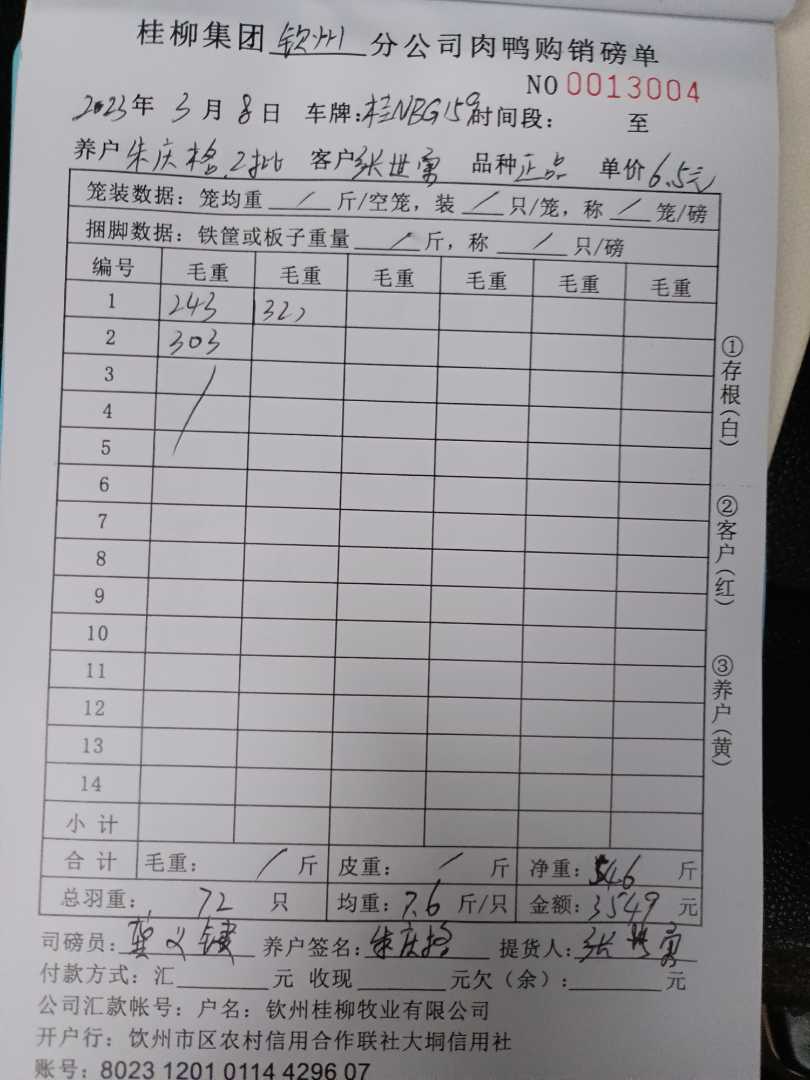 桂柳集团钦州分公司肉鸭购销磅单
NO 0013004
2023年3月8日 车牌:桂NBG159 时间段: 至
养户 朱庆格 2批 客户 张世富 品种 正品 单价 6.5元
笼装数据: 笼均重 / 斤/空笼, 装 / 只/笼, 称 / 笼/磅
捆脚数据: 铁筐或板子重量 / 斤, 称 / 只/磅
编号 毛重 毛重 毛重 毛重 毛重 毛重
1 243
2 303
3 /
4
5
6
7
8
9
10
11
12
13
14
小计
合计 毛重: / 斤 皮重: / 斤 净重: 546 斤
总羽重: 72 只 均重: 7.6 斤/只 金额: 3549 元
司磅员: 养户签名: 朱庆格 提货人: 张世富
付款方式: 汇 元 收现 元欠(余): 元
公司汇款帐号: 户名: 钦州桂柳牧业有限公司
开户行: 钦州市区农村信用合作联社大垌信用社
账号: 8023 1201 0114 4296 07
①存根(白)
②客户(红)
③养户(黄)